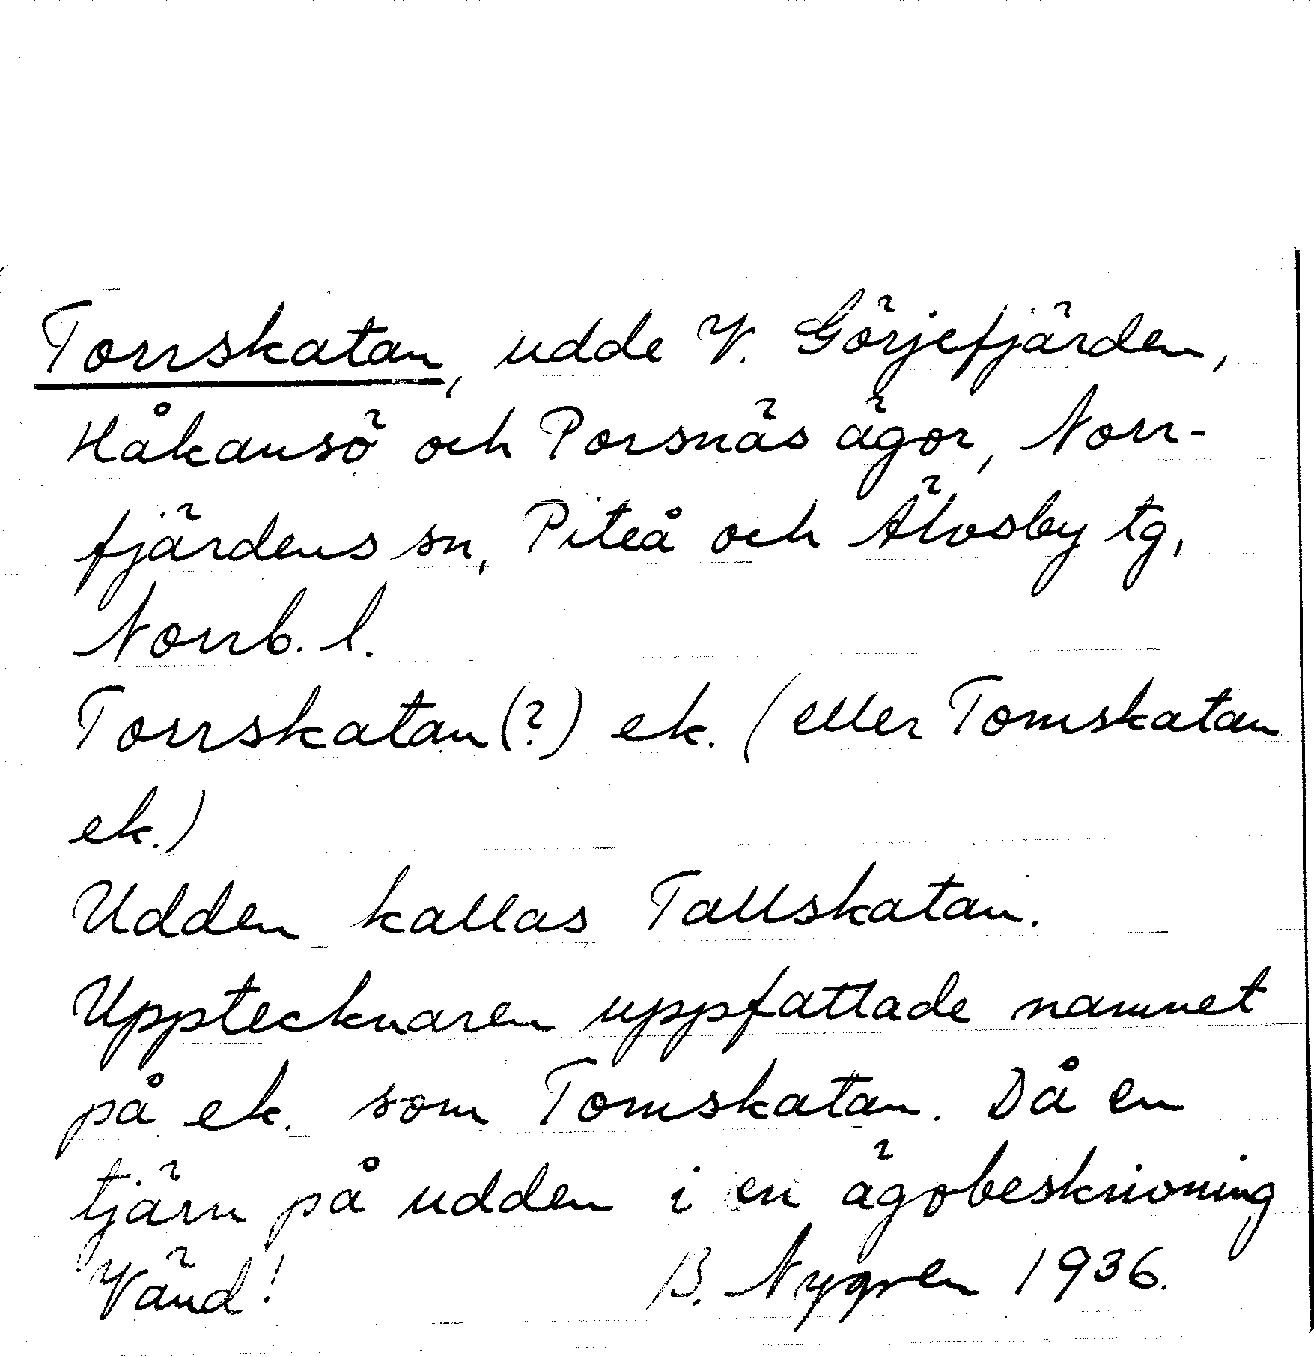 Torrskatan, udde V. Görjefjärden,
Håkansö och Porsnäs ägor, Norr-
fjärdens sn, Piteå och Älvsby tg,
Norrb. l.
Torrskatan (?) ek. (eller Tomskatan
ek.)
Udden kallas Tallskatan.
Upptecknaren uppfattade namnet
på ek. som Tomskatan. Då en
tjärn på udden i en ägobeskrivning
Vänd! B. Nygren 1936.